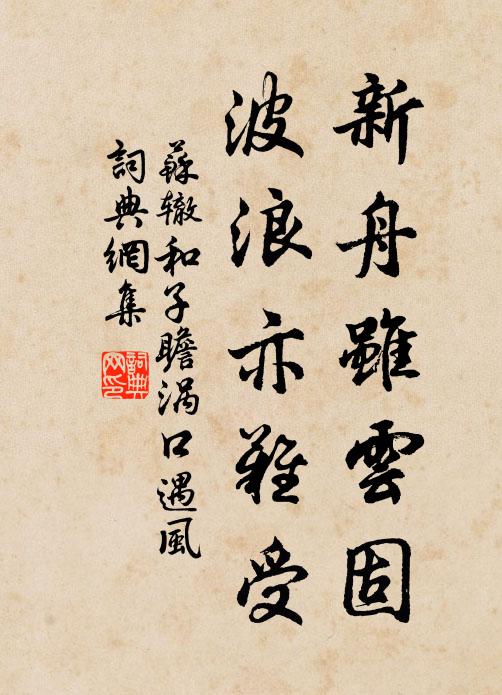 新舟雖雲固
波浪亦難受
蘇辙和子瞻涡口遇風
詞典網集
詞典网印